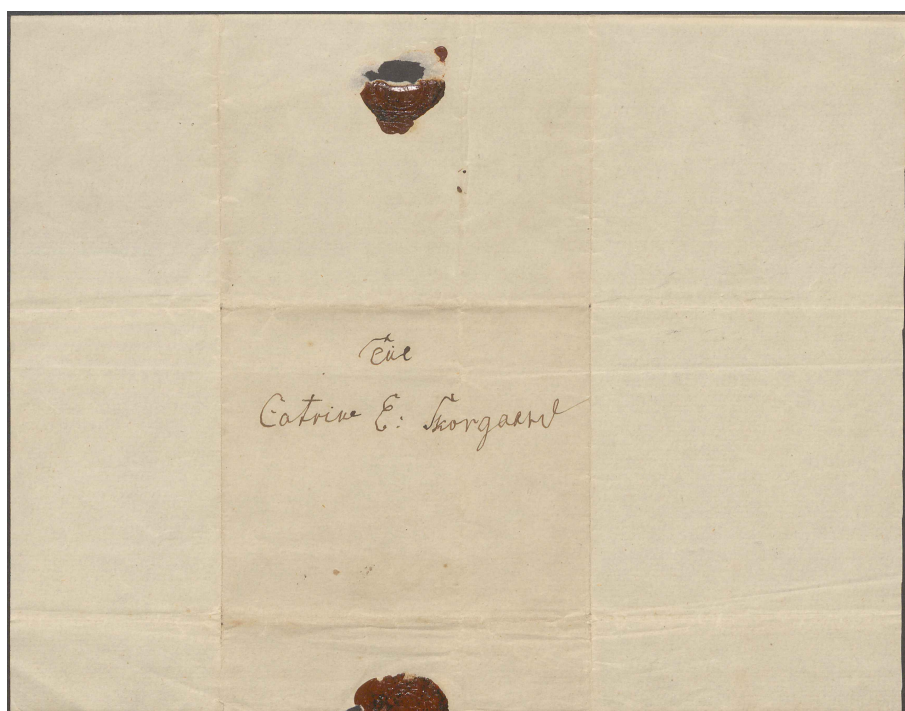 Til
Catrine E: Skorgaard